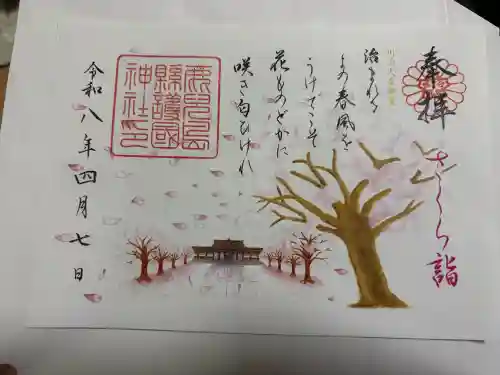 奉拝
さくら詣
明治天皇御製
治まれる
よの春風を
うけてこそ
花ものどかに
咲き匂ひけれ
鹿児島
縣護國
神社印
令和八年四月七日